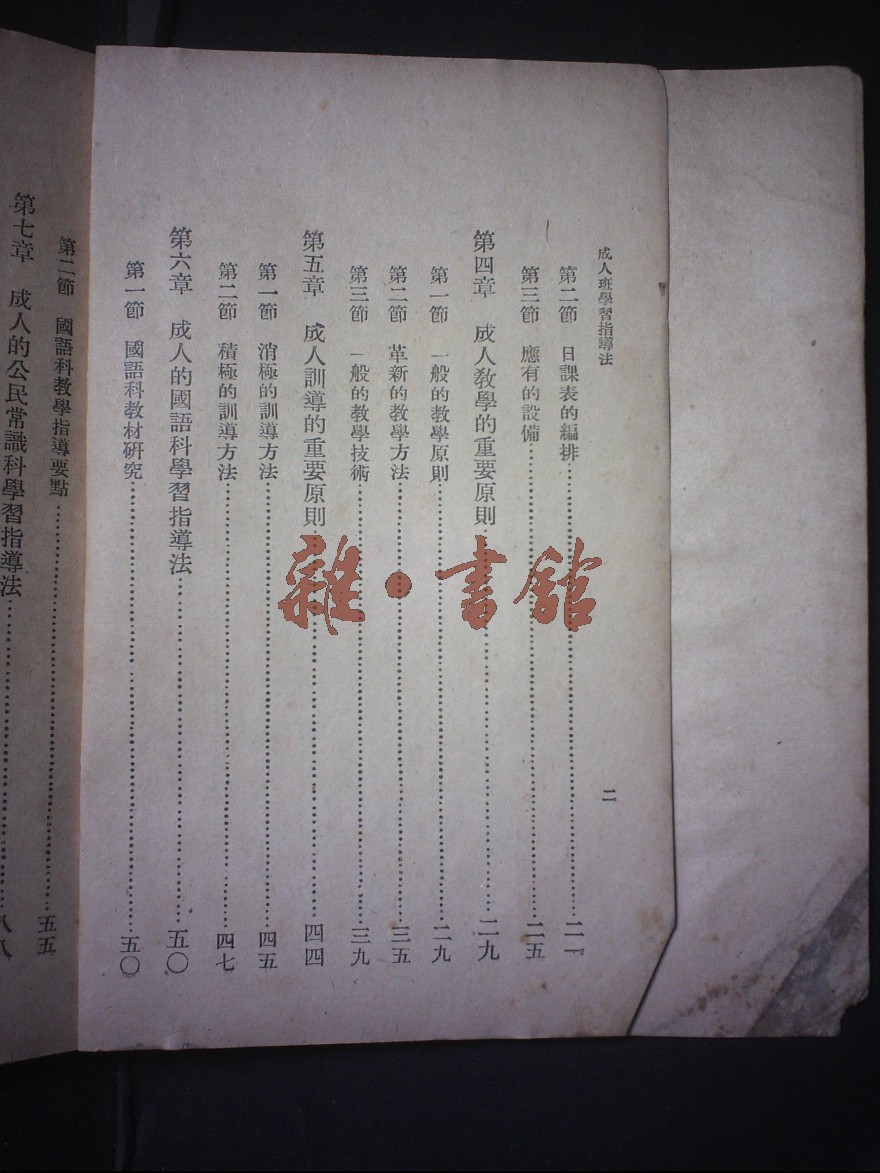 成人班學習指導法
二
第二節 日課表的編排……二一
第三節 應有的設備……二五
第四章 成人教學的重要原則……二九
第一節 一般的教學原則……二九
第二節 革新的教學方法……三五
第三節 一般的教學技術……三九
第五章 成人訓導的重要原則……四四
第一節 消極的訓導方法……四五
第二節 積極的訓導方法……四七
第六章 成人的國語科學習指導法……五〇
第一節 國語科教材研究……五〇
第二節 國語科教學指導要點……五五
第七章 成人的公民常識科學習指導法……八八
雜·書館